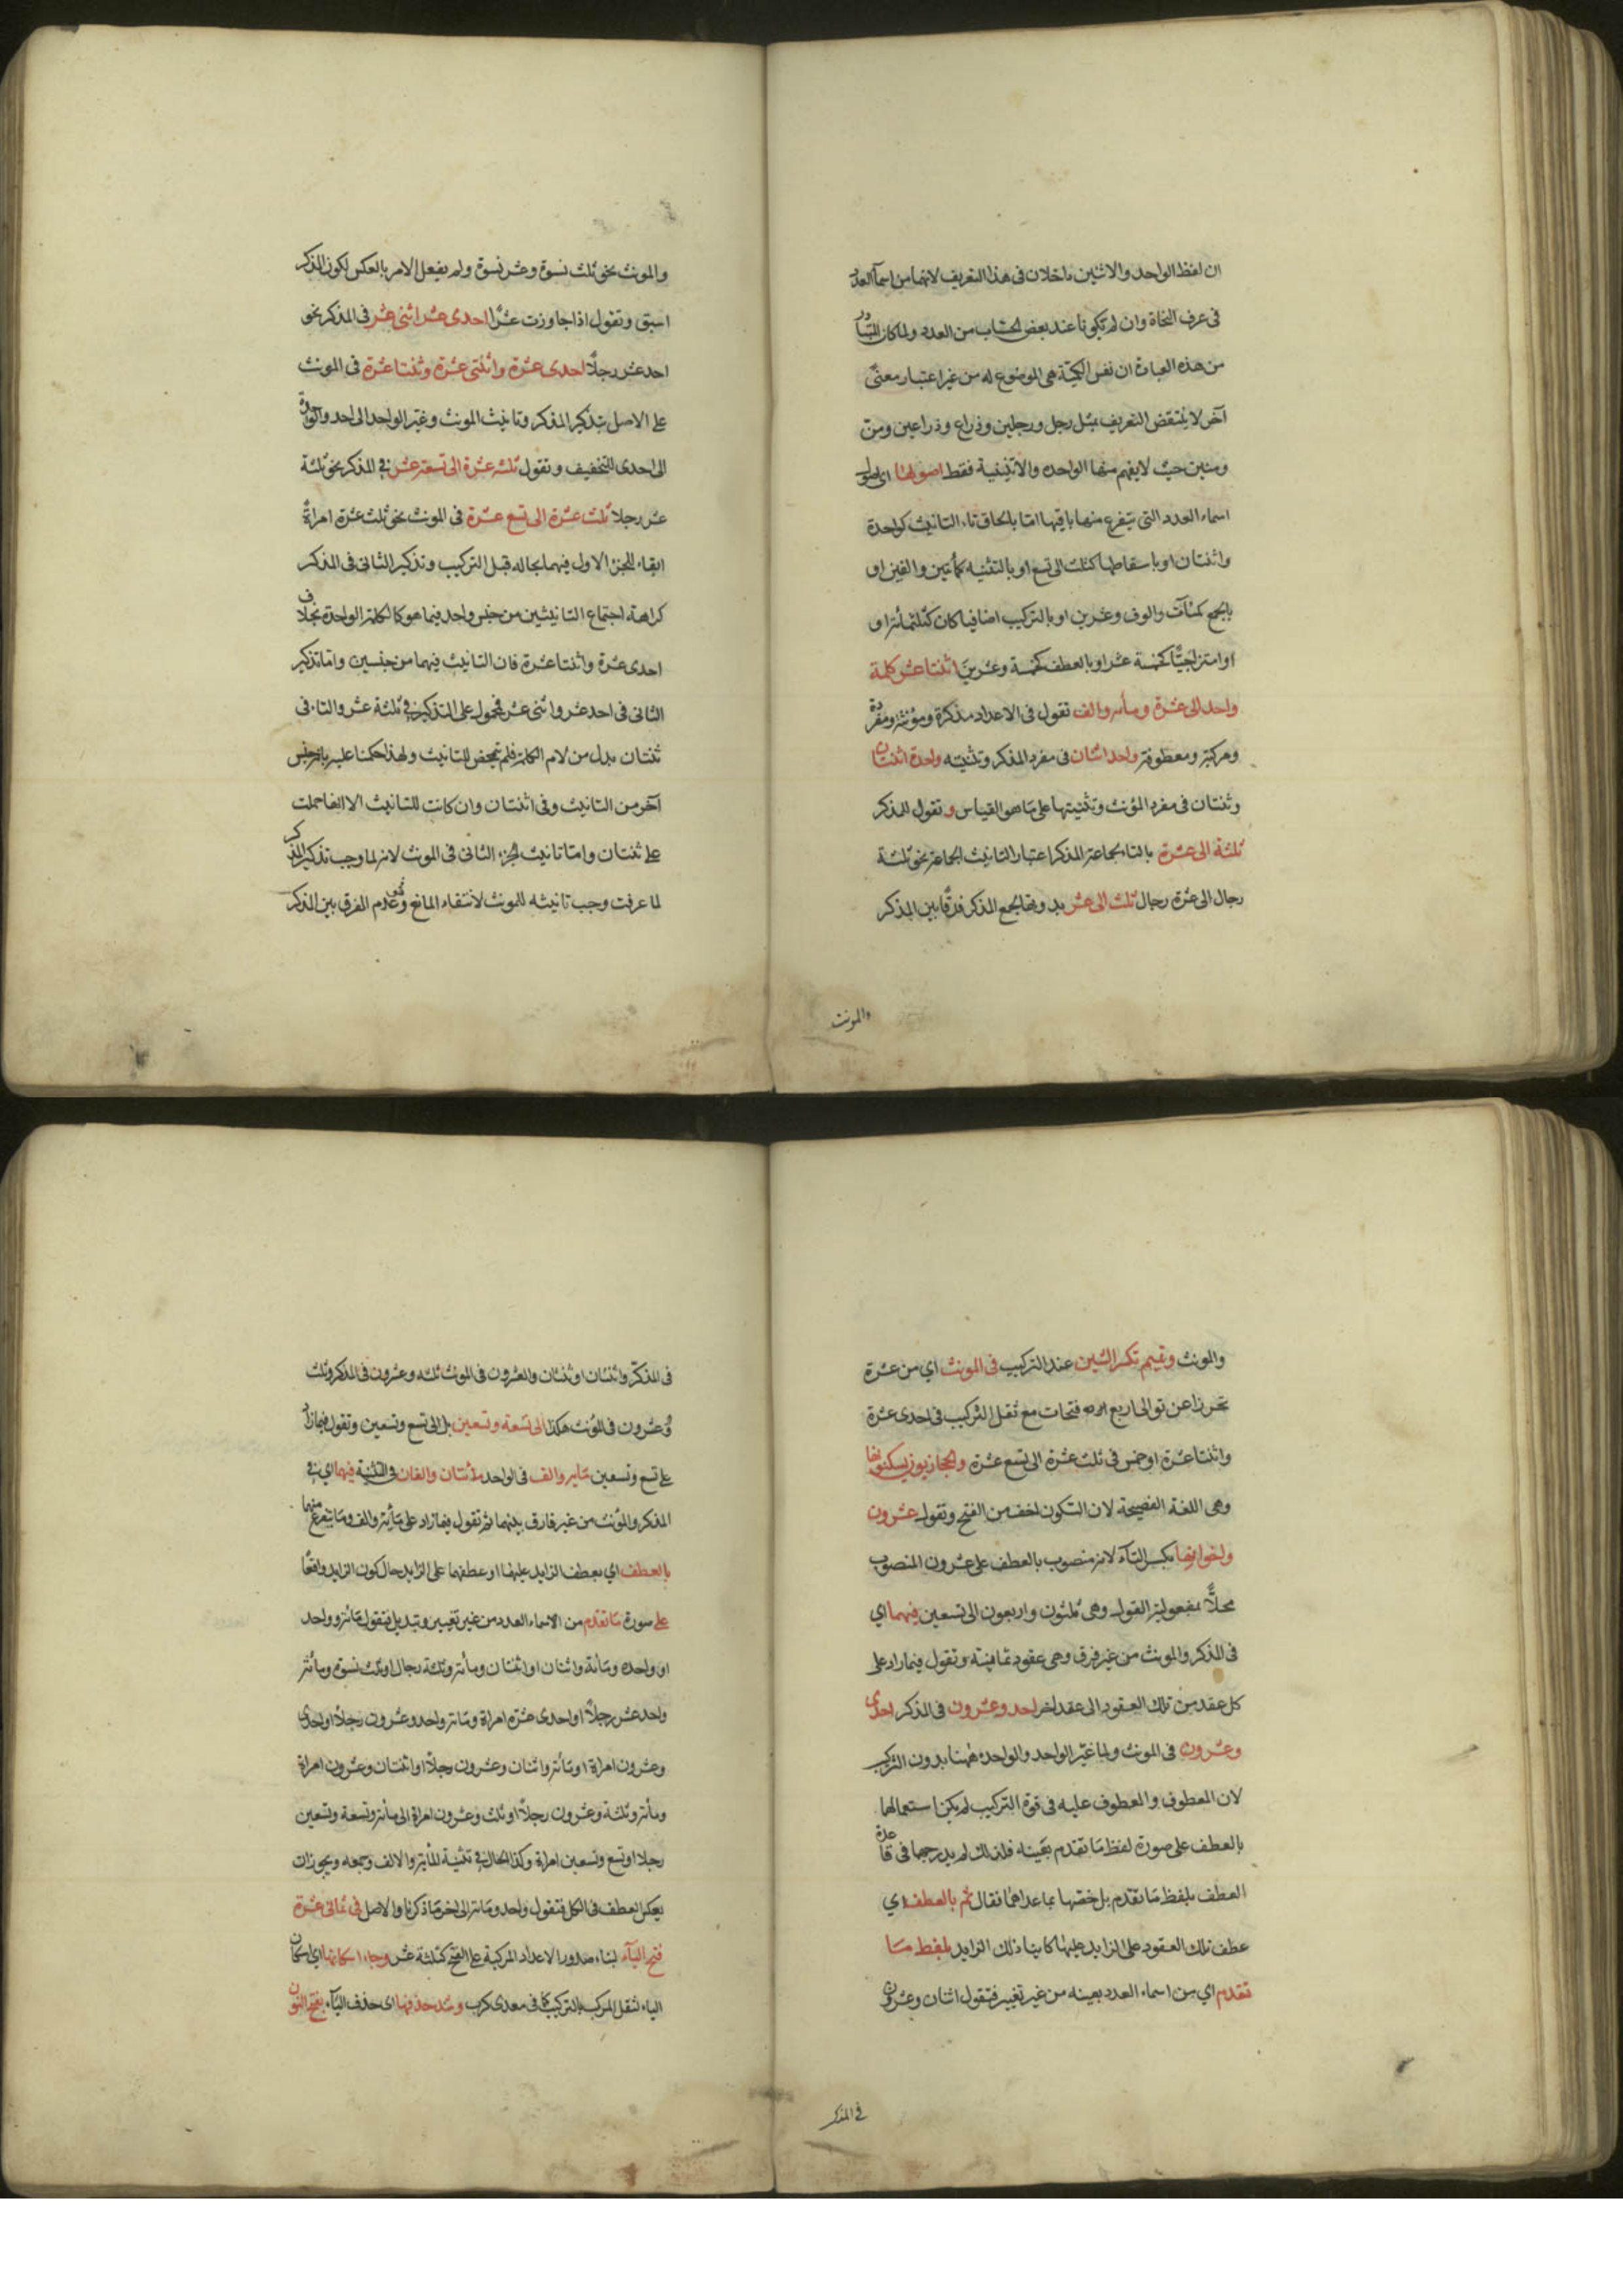 ان لفظ الواحد والاثنين داخلان فى هذا التعريف لانهما من اسمآ العدد
فى عرف النحاة وان لم يكونا عند بعض الحساب من العدد ولما كان المتبادر
من هذه العبارة ان نفس الكمية هى الموضوع له من غير اعتبار معنى
آخر لا ينتقض التعريف بمثل رجل ورجلين وذراع وذراعين ومن
ومنين حيث لا يفهم منها الواحده والاثنينية فقط اصولها اى اصول
اسماء العدد التى يتفرع منها باقيها امّا بالحاق تاء التانيث كواحدة
واثنتان او باسقاطها كثلث الى تسع او بالتثنيه كمأتين والفين او
بالجمع كمئآت والوف وعشرين او بالتركيب اضافيا كان كثلثمائة او
او امتزاجيًّا كخمسة عشر او بالعطف كخمسة وعشرين اثنتا عشر كلمة
واحد الى عشرة ومأىه والف تقول فى الاعداد مذكرة ومؤنثه ومفردة
ومركبة ومعطوفة واحد اثنان فى مفرد المذكر وتثنيته واحدة اثنتان
وثنتان فى مفرد المؤنث وتثنيتها على ما هو القياس و تقول للمذكر
ثلثة الى عشرة بالتاء لجماعة المذكر اعتبار التانيث الجماعة نحو ثلثة
رجال الى عشرة رجال ثلث الى عشر بدونها لجمع المذكر فرقًا بين المذكر
والمونث
والمونث نحو ثلث نسوة وعشر نسوة ولم يفعل الامر بالعكس لكون المذكر
اسبق وتقول اذا جاوزت عشرًا احدى عشر اثنى عشر فى المذكر نحو
احد عشر رجلًا احدى عشرة واثنتى عشرة وثنتا عشرة فى المونث
على الاصل بتذكير المذكر وتانيث المونث وغير الواحد الى احد والواحدة
الى احدى للتخفيف وتقول ثلثه عشرة الى تسعة عشر فى المذكر نحو ثلثة
عشر رجلا ثلث عشرة الى تسع عشرة فى المونث نحو ثلث عشرة امراةً
ابقاء للجزء الاول فيهما بحاله قبل التركيب وتذكير الثانى فى المذكر
كراهة اجتماع التانيثين من جنس واحد فيما هو كالكلمة الواحدة بخلاف
احدى عشرة واثنتا عشرة فان التانيث فيهما من جنسين وامّا تذكير
الثانى فى احد عشر واثنى عشر فمحمول على التذكير فى ثلثة عشر والتاء فى
ثنتان بدل من لام الكلمة فلم تتمحض للتانيث ولهذا حكمنا عليه بانه جنس
آخر من التانيث وفى اثنتان وان كانت للتانيث الا انها حملت
على ثنتان وامّا تانيث الجزء الثانى فى المونث لانه لما وجب تذكير المذكر
لما عرفت وجب تانيثه للمونث لانتفاء المانع وهو عدم الفرق بين المذكر
والمونث وتميم تكسر الشين عند التركيب فى المونث اي من عشرة
تحرزا عن توالى اربع فتحات مع ثقل التركيب فى احدى عشرة
واثنتا عشرة او خمس فى ثلث عشرة الى تسع عشرة والحجازيون يسكنونها
وهى اللغة الفصيحة لان السكون اخف من الفتح وتقول عشرون
واخواتها بكسر التآء لانه منصوب بالعطف على عشرون المنصوب
محلًّا بمفعولية القول وهى ثلثون واربعون الى تسعين فيهما اى
فى المذكر والمونث من غير فرق وهى عقود ثمانية وتقول فيما زاد على
كل عقد من تلك العقود الى عقد اخر احد وعشرون فى المذكر احدى
وعشرون فى المونث ولما غيّر الواحد والواحدة ههنا بدون التركيب
لان المعطوف والمعطوف عليه فى قوة التركيب لم يكن استعمالها
بالعطف على صورة لفظ ما تقدم بعينه فلذلك لم يدرجها فى قاعدة
العطف بلفظ ما تقدم بل خصّها بما عداهما فقال ثم بالعطف اي
عطف تلك العقود على الزايد عليها كاينا ذلك الزايد بلفظ ما
تقدم اي من اسماء العدد بعينه من غير تغيير فتقول اثنان وعشرون
فى المذكر
فى المذكر واثنتان او ثنتان وعشرون فى المونث ثلثه وعشرون فى المذكر وثلث
وعشرون فى المونث هكذا الى تسعه وتسعين بل الى تسع وتسعين وتقول فيما زاد
على تسع وتسعين مايه والف فى الواحد مأتان والفان فى التثنية فيهما اي فى
المذكر والمؤنث من غير فارق بينهما ثم تقول فيما زاد على مأية والف وما يتفرع منهما
بالعطف اي بعطف الزايد عليهما او عطفهما على الزايد حال كون الزايد واقعًا
على صورة ما تقدم من الاسماء العدد من غير تغيير وتبديل فتقول مائة وواحد
او واحده ومأئة واثنان او اثنتان ومأئة وثلثة رجال او ثلث نسوة ومأئة
واحد عشر رجلًا او احدى عشرة امراة ومأئة واحد وعشرون رجلًا او احدى
وعشرون امراة او مأئة واثنان وعشرون رجلًا او اثنتان وعشرون امراة
ومأئة وثلثة وعشرون رجلًا او ثلث وعشرون امراة الى مأئة وتسعة وتسعين
رجلا او تسع وتسعين امراة وكذا الحال فى تثنية المأئة والالف وجمعه ويجوز ان
يعكس العطف فى الكل فتقول واحد ومائة الى اخر ما ذكرنا والاصل فى ثمانى عشرة
فتح اليآء لبناء صدور الاعداد المركبة على الفتح كثلثة عشر وجاء اسكانها اى اسكان
الياء لثقل المركب بالتركيب كما فى معدى كرب وشذ حذفها اى حذف اليآء بفتح النون